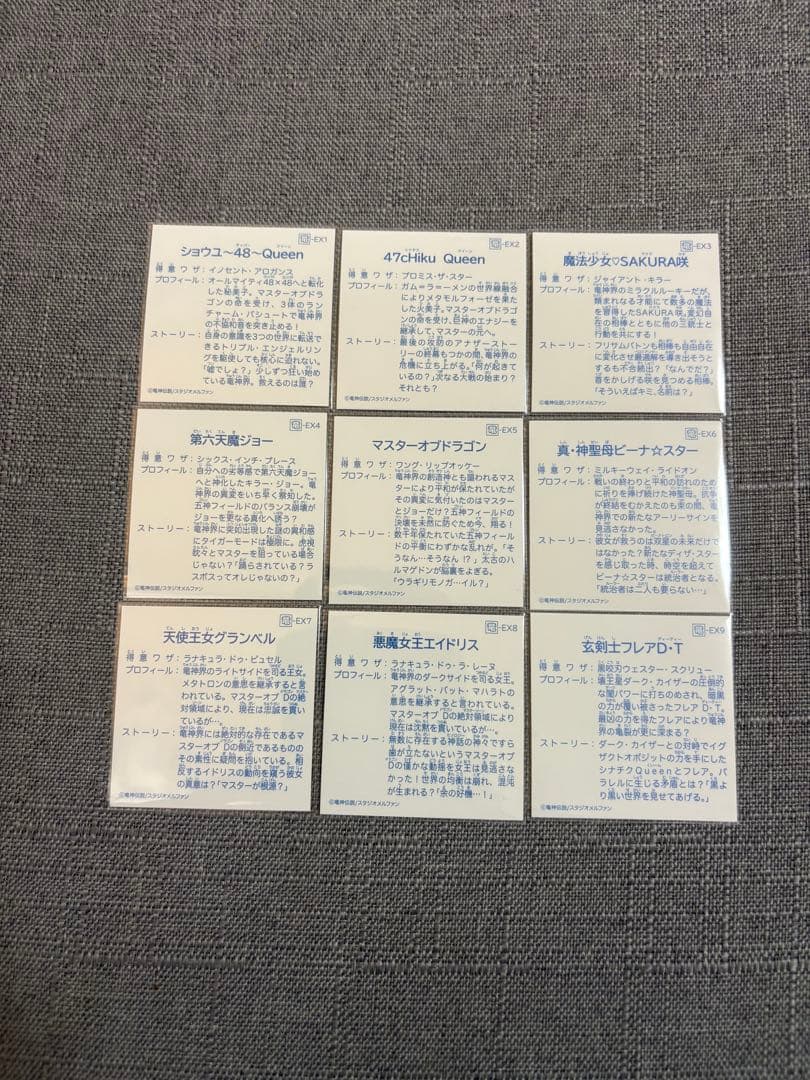 -EX1
ショウユ～48～Queen
得意ワザ：イノセント・アロガンス
プロフィール：オールマイティ48×48へと転化
した秘美子。マスターオブドラ
ゴンの命を受け、3体のラン
チャーム・パシュートで竜神界
の不協和音を突き止める！
ストーリー：自身の意識を3つの世界に転送で
きるトリプル・エンジェルリング
を駆使しても核心に迫れない。
「嘘でしょ？」少しずつ狂い始め
ている竜神界。救えるのは誰？
©竜神伝説/スタジオメルファン
-EX2
47cHiku Queen
得意ワザ：プロミス・ザ・スター
プロフィール：ガム＝ラ＝メンの世界線融合
によりメタモルフォーゼを果たし
た火美子。マスターオブドラゴン
の命を受け、巨神のエナジーを
継承して、マスターの元へ。
ストーリー：最後の攻防のアナザーストー
リーの終幕もつかの間、竜神界の
危機に立ち上がる。「何が起きて
いるの？」次なる大戦の始まり？
それとも？
©竜神伝説/スタジオメルファン
-EX3
魔法少女♡SAKURA咲
得意ワザ：ジャイアント・キラー
プロフィール：竜神界のミラクルルーキーだが、
類まれなる才能にて数多の魔法
を習得したSAKURA咲。変幻自
在の相棒とともに他の三銃士と
行動を共にする！
ストーリー：フリサムバトンも相棒も自由自在
に変化させ最適解を導き出そうと
するも不合続出？「なんでだ？」
音をかしげる咲を見つめる相棒。
「そういえばキミ、名前は？」
©竜神伝説/スタジオメルファン
-EX4
第六天魔ジョー
得意ワザ：シックス・インチ・プレース
プロフィール：自分への劣等感で第六天魔ジョー
へと神化したキラー・ジョー。竜
神界の異変をいち早く察知した。
五神フィールドのバランス崩壊が
ジョーを更なる真化へ誘う？
ストーリー：竜神界に突如出現した謎の異和感
にタイガーモードは極限に。虎視
眈々とマスターを狙っている場合
じゃない？「踊らされている？ラ
スボスってオレじゃないの？」
©竜神伝説/スタジオメルファン
-EX5
マスターオブドラゴン
得意ワザ：ワング・リップオッケー
プロフィール：竜神界の創造神とも謳われるマス
ターにより平和が保たれていたが
その異変に気付いたのはマスター
とジョーだけ？五神フィールドの
決壊を未然に防ぐため今、翔る！
ストーリー：数千年保たれていた五神フィー
ルドの平衡にわずかな乱れが。「そ
うなん…そうなん!？」太古のハ
ルマゲドンが脳裏をよぎる。
「ウラギリモノガ…イル？」
©竜神伝説/スタジオメルファン
-EX6
真・神聖母ピーナ☆スター
得意ワザ：ミルキーウェイ・ライドオン
プロフィール：戦いの終わりと平和の訪れのため
に祈りを捧げ続けた神聖母。抗争
が終結をむかえたのも束の間、竜
神界での新たなアーリーサインを
見逃さなかった。
ストーリー：彼女が救うのは双星の未来だけで
はなかった？新たなディザ・スター
を感じ取った時、時空を超えて
ピーナ☆スターは統治者となる。
「統治者は二人も要らない…」
©竜神伝説/スタジオメルファン
-EX7
天使王女グランベル
得意ワザ：ラナキュラ・ドゥ・ピュセル
プロフィール：竜神界のライトサイドを司る王女。
メタトロンの意思を継承すると言
われている。マスターオブ Dの絶
対領域により、現在は忠誠を貫い
ているが…。
ストーリー：竜神界には絶対的な存在であるマ
スターオブ Dの側近であるものの
その素性に疑問を抱いている。相
反するイドリスの動向を窺う彼女
の真意は？「マスターが根源？」
©竜神伝説/スタジオメルファン
-EX8
悪魔女王エイドリス
得意ワザ：ラナキュラ・ドゥ・ラ・レーヌ
プロフィール：竜神界のダークサイドを司る女王。
アグラット・バット・マハラトの
意思を継承すると言われている。
マスターオブ Dの絶対領域により
現在は沈黙を貫いているが…。
ストーリー：無数に存在する神話の神々ですら
歯が立たないというマスターオブ
Dの僅かな動揺を女王は見逃さな
かった！世界の均衡は崩れ、混沌
が生まれる？「余の好機…！」
©竜神伝説/スタジオメルファン
-EX9
玄剣士フレアD・T
得意ワザ：黒咬刃ウェスター・スクリュー
プロフィール：壊王星ダーク・カイザーの圧倒的
な闇パワーに打ちのめされ、暗黒
の力が覆い被さったフレア D・T。
最凶の力を得たフレアにより竜神
界の亀裂が更に深まる？
ストーリー：ダーク・カイザーとの対峙でイグ
ザクトオポジットの力を手にした
シナチクQueenとフレア。パ
ラレルに生じる矛盾とは？「黒
より黒い世界を見せてあげる。」
©竜神伝説/スタジオメルファン